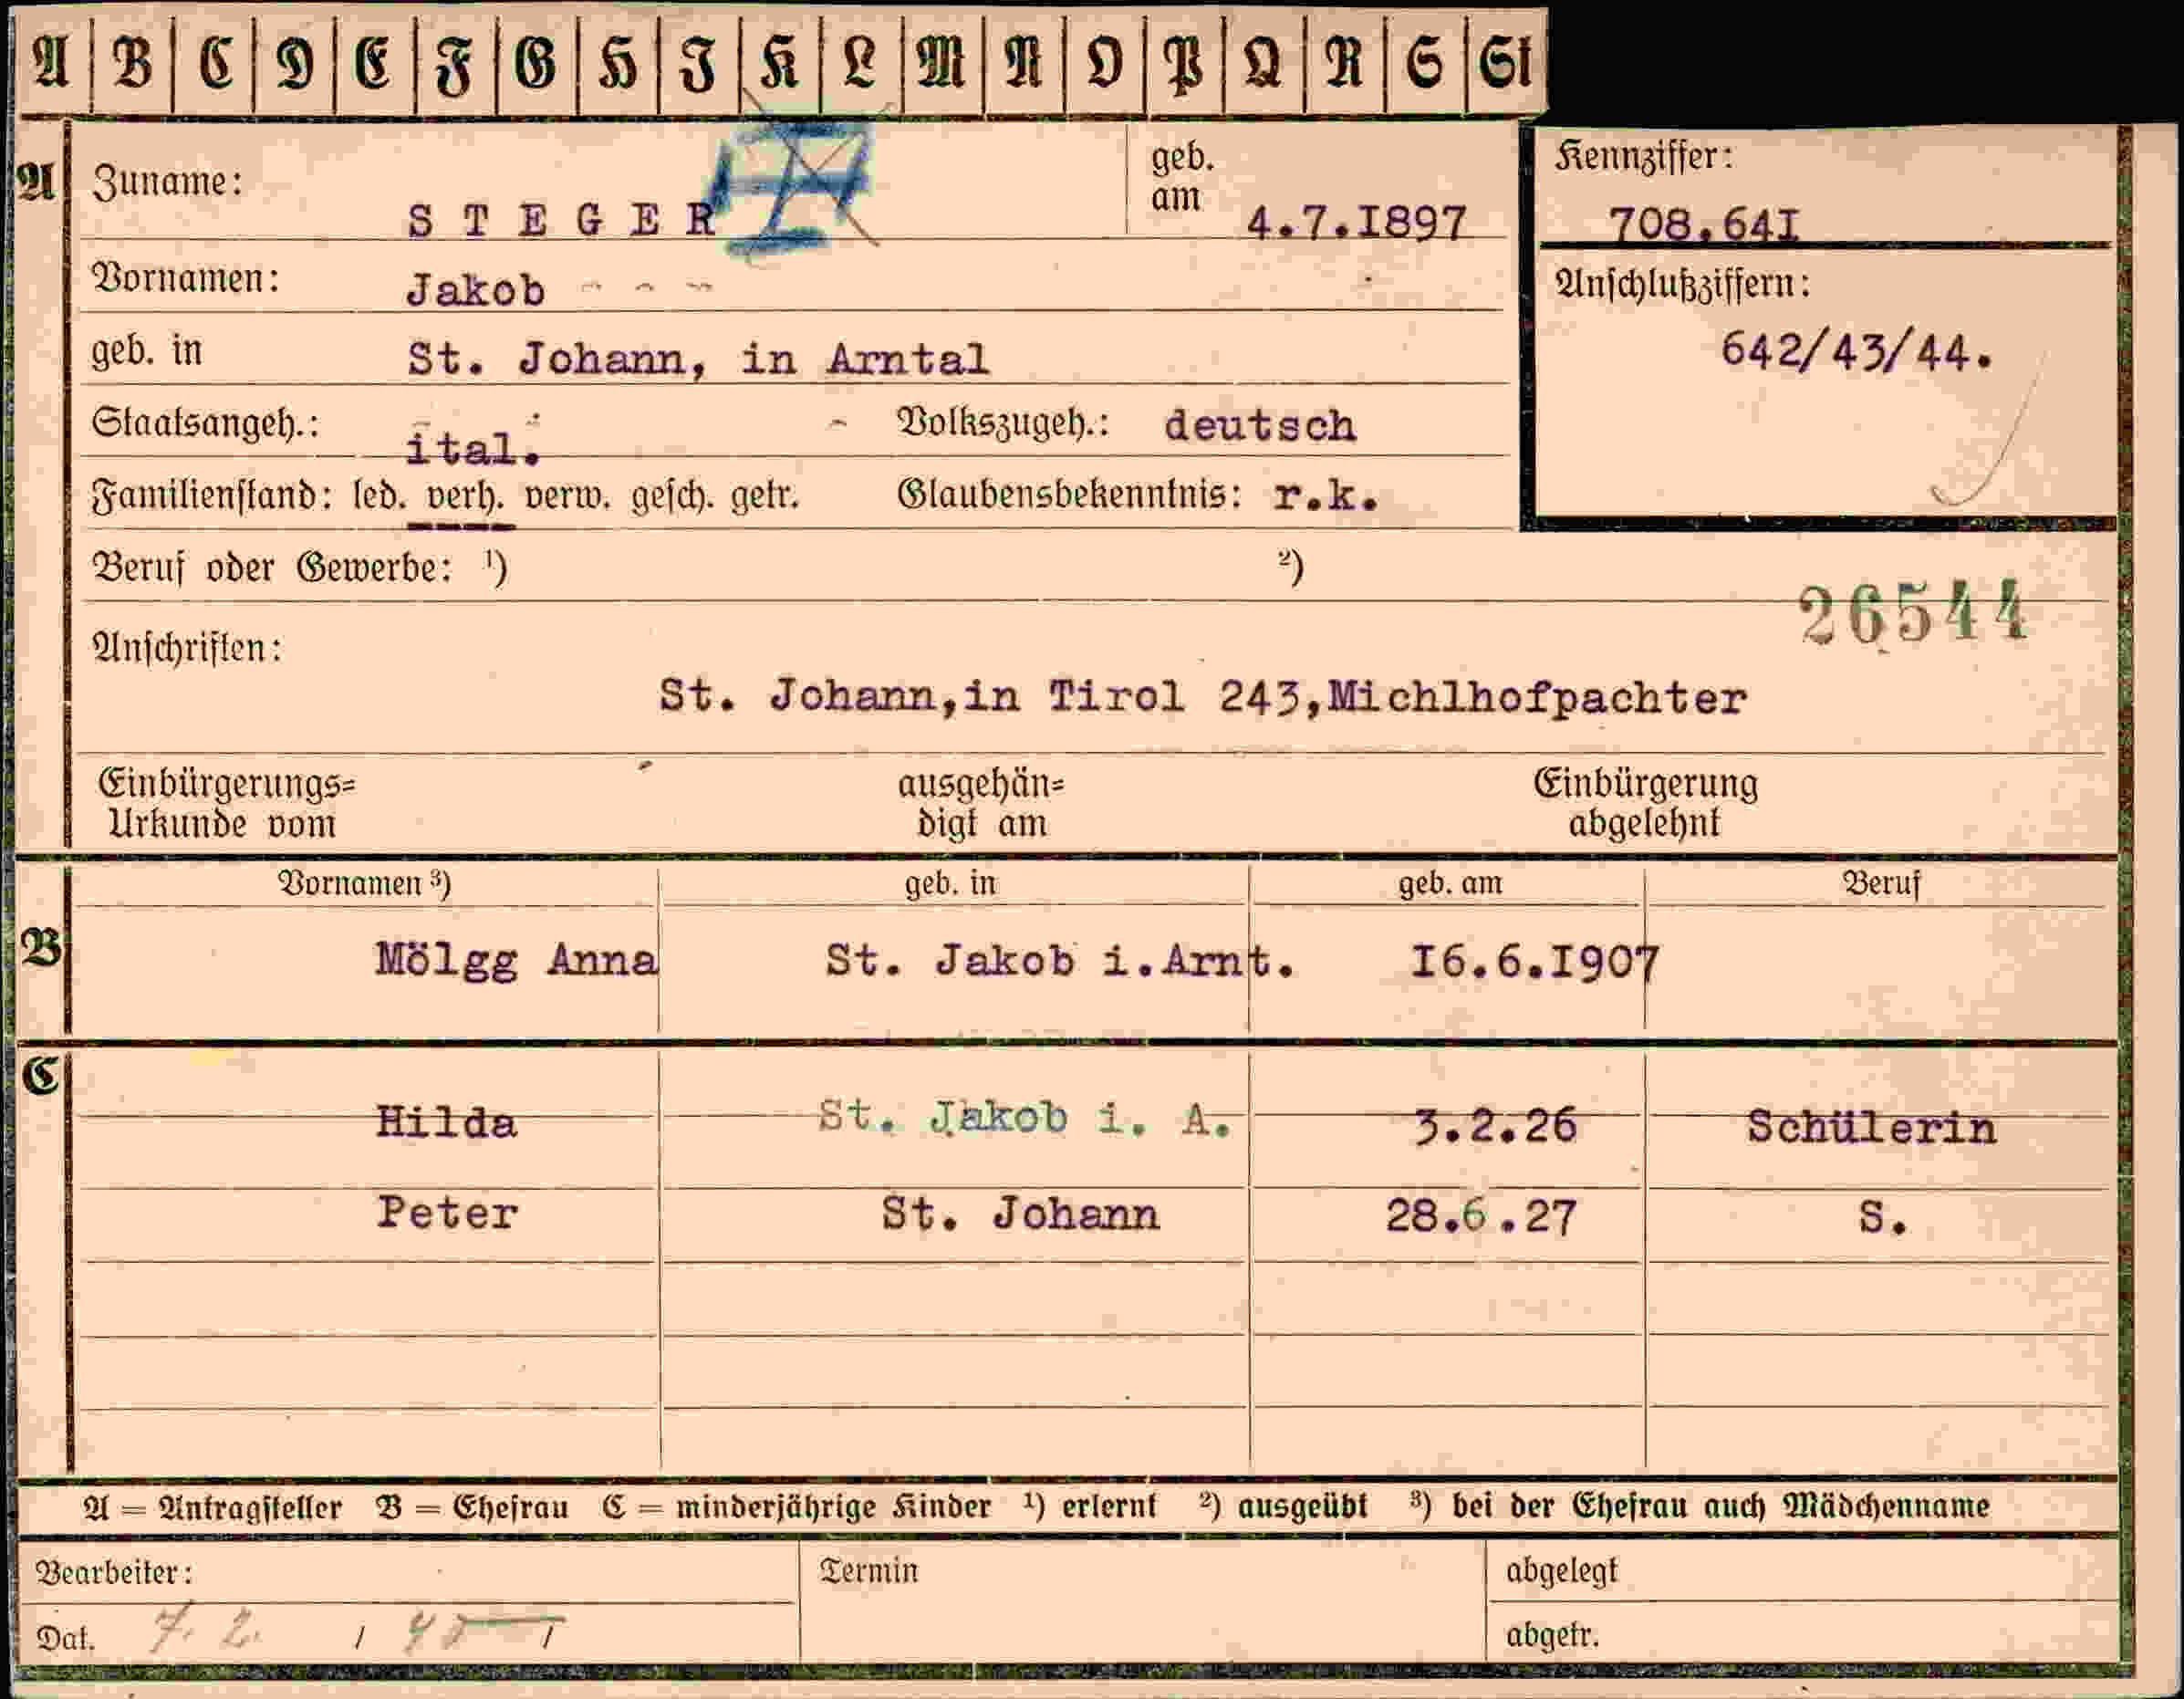 A B C D E F G H I K L M N O P Q R S St
A Zuname: STEGER geb. am 4.7.I897
Kennziffer: 708.64I
Vornamen: Jakob - - -
Anschlußziffern: 642/43/44.
geb. in St. Johann, in Arntal
Staatsangeh.: ital. Volkszugeh.: deutsch
Familienstand: led. verh. verw. gesch. getr. Glaubensbekenntnis: r.k.
Beruf oder Gewerbe: ¹) ²)
26544
Anschriften:
St. Johann,in Tirol 243,Michlhofpachter
Einbürgerungs=
Urkunde vom
ausgehän=
digt am
Einbürgerung
abgelehnt
Vornamen ³) geb. in geb. am Beruf
B Mölgg Anna St. Jakob i.Arnt. I6.6.I907
C Hilda St. Jakob i. A. 3.2.26 Schülerin
Peter St. Johann 28.6.27 S.
A = Antragsteller B = Ehefrau C = minderjährige Kinder ¹) erlernt ²) ausgeübt ³) bei der Ehefrau auch Mädchenname
Bearbeiter: Termin abgelegt
Dat. 7. 2. abgetr.